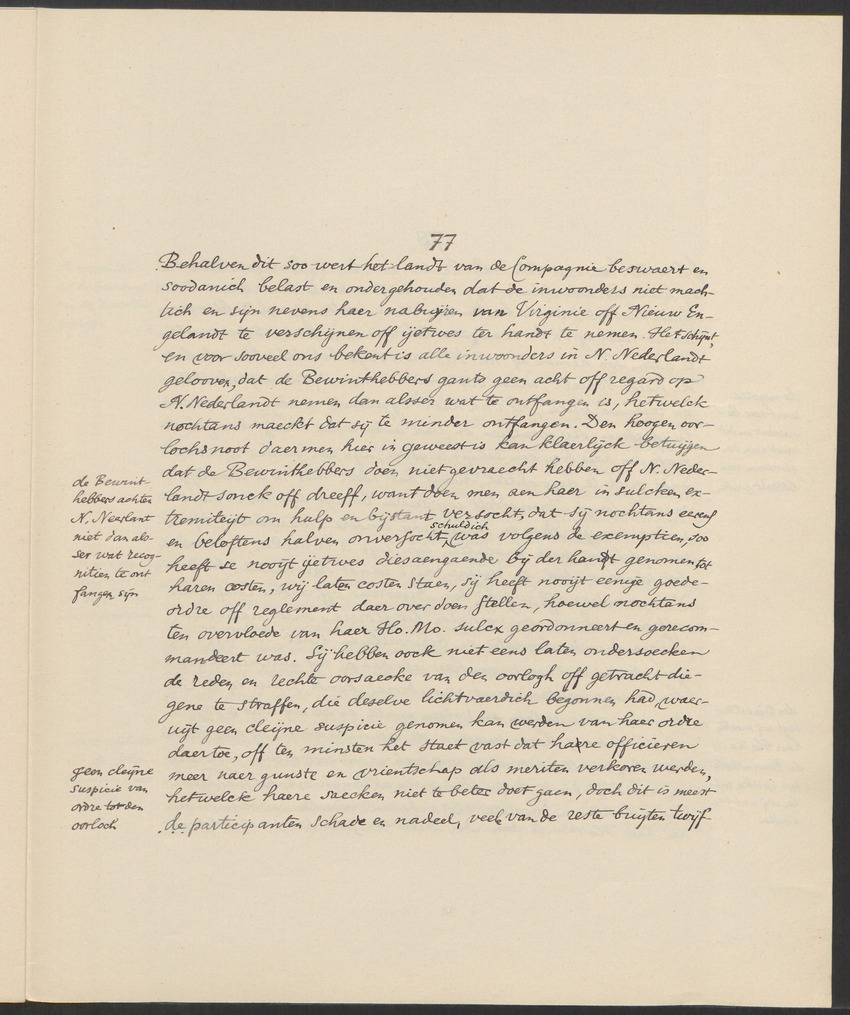 77
Behalven dit soo wert het landt van de Compagnie beswaert en
soodanich belast en ondergehouden dat de inwoonders niet mach-
tich en sijn nevens haer nabuijren van Virginie off Nieuw En-
gelandt te verschijnen off ijetwes ter handt te nemen. Het schijnt,
en voor sooveel ons bekent is alle inwoonders in N. Nederlandt
gelooven, dat de Bewinthebbers gants geen acht off regard op
N. Nederlandt nemen dan alsser wat te ontfangen is, hetwelck
nochtans maeckt dat sij te minder ontfangen. Den hoogen oor-
lochsnoot daer men hier in geweest is kan klaerlijck betuijgen
dat de Bewinthebbers doen niet gevraecht hebben off N. Neder-
landt sonck off dreeff, want doen men aen haer in sulcken ex-
tremiteijt om hulp en bijstant versocht, dat sij nochtans eerens
schuldich
en beloftens halven onversocht, was volgens de exemptien, soo
heeft se nooijt ijetwes diesaengaende bij der handt genomen tot
haren costen, wij laten costen staen, sij heeft nooijt eenige goede-
ordre off reglement daer over doen stellen, hoewel nochtans
ten overvloede van haer Ho. Mo. sulcx geordonneert en gerecom-
mandeert was. Sij hebben oock niet eens laten ondersoecken
de reden en rechte oorsaecke van den oorlogh off getracht die-
gene te straffen, die deselve lichtvaerdich begonnen had, waer-
uijt geen cleijne suspicie genomen kan werden van haer ordre
daertoe, off ten minsten het staet vast dat haere officieren
meer naer gunste en vrientschap als meriten verkoren werden,
hetwelck haere saecken niet te beter doet gaen, doch dit is meest
de participanten schade en nadeel, veele van de reste buijten twijf-
de Bewint-
hebbers achten
N. Neerlant
niet dan als-
ser wat recog-
nitien te ont
fangen sijn
geen cleijne
suspicie van
ordre tot den
oorloch